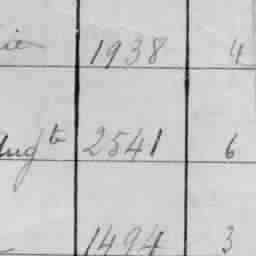 1938 4
Augte 2541 6
1494 3